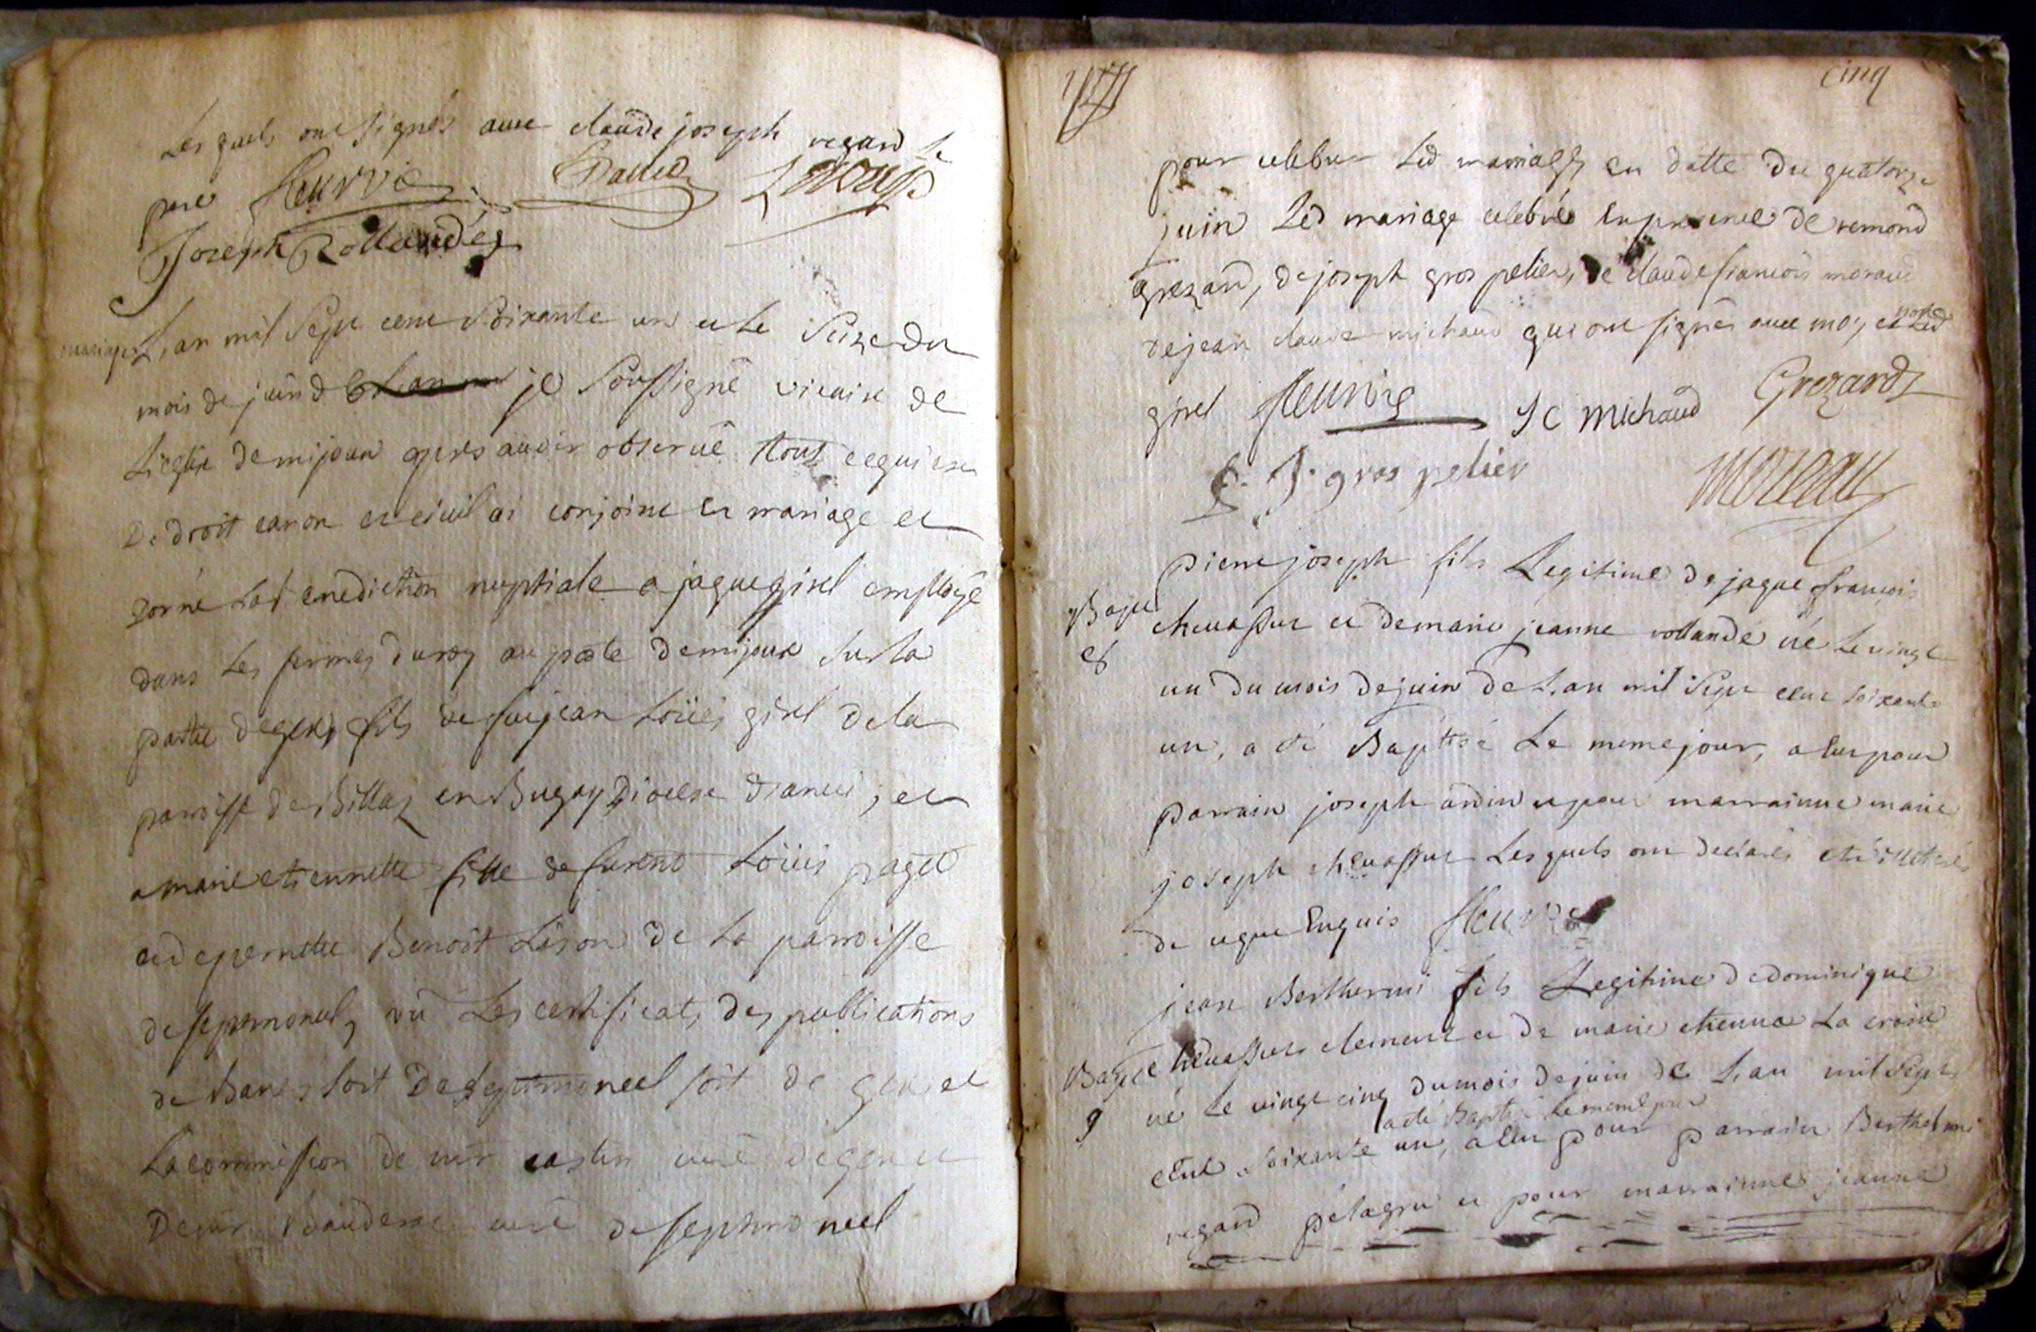 Lesquels ont signés avec claude joseph regard le
pere fleurvie David
Joseph Rollandéz
mariage L'an mil Sept cent Soixante un et le Seize du
mois de juin je Soussigné vicaire de
L'eglise de mijoux apres avoir observé tout ce qui est
De droit canon et civil ai conjoint en mariage et
donné La Benediction nuptiale a jaque girel employé
dans Les fermes du roy au poste de mijoux Sur la
partie de gex, fils de feu jean Loüis girel de la
parroisse de Billaz en Bugey Diocese d'anneci, et
a marie etiennette fille de furent Loüis paget
et de pernette Benoit Lison de La parroisse
de septmoncel, vu Les certificats des publications
de Bans soit De Septmoncel soit de gex et
La commission de mr castin curé de gex et
De mr curé de septmoncel
cinq
pour celebrer Led mariage en datte du quatorze
juin Led mariage celebré en presence de remond
grezard, de joseph gros pelier, de claude francois moraud
de jean claude michaud qui ont signés avec moy et non Led
girel fleurvie J C Michaud Grezard
J. gros pelier moreau
Pierre joseph fils Legitime de jaque francois
Bapt chevassus et de marie jeanne rollande né Le vingt
8 un du mois de juin de L'an mil Sept cent soixante
un, a été Baptisé Le meme jour, a eu pour
parrain joseph et pour marrainne marie
joseph chevassus Lesquels ont declarés etre illiterés
de ce que Enquis fleurvie
jean Berthermi fils Legitime de dominique
Bapt chevassus clement et de marie etienna La croix
9 né Le vingt cinq du mois de juin de L'an mil Sept
a été Baptisé Le meme jour
cent soixante un, a eu pour parrain Berthelmi
regard pelagru et pour marrainne jeanne